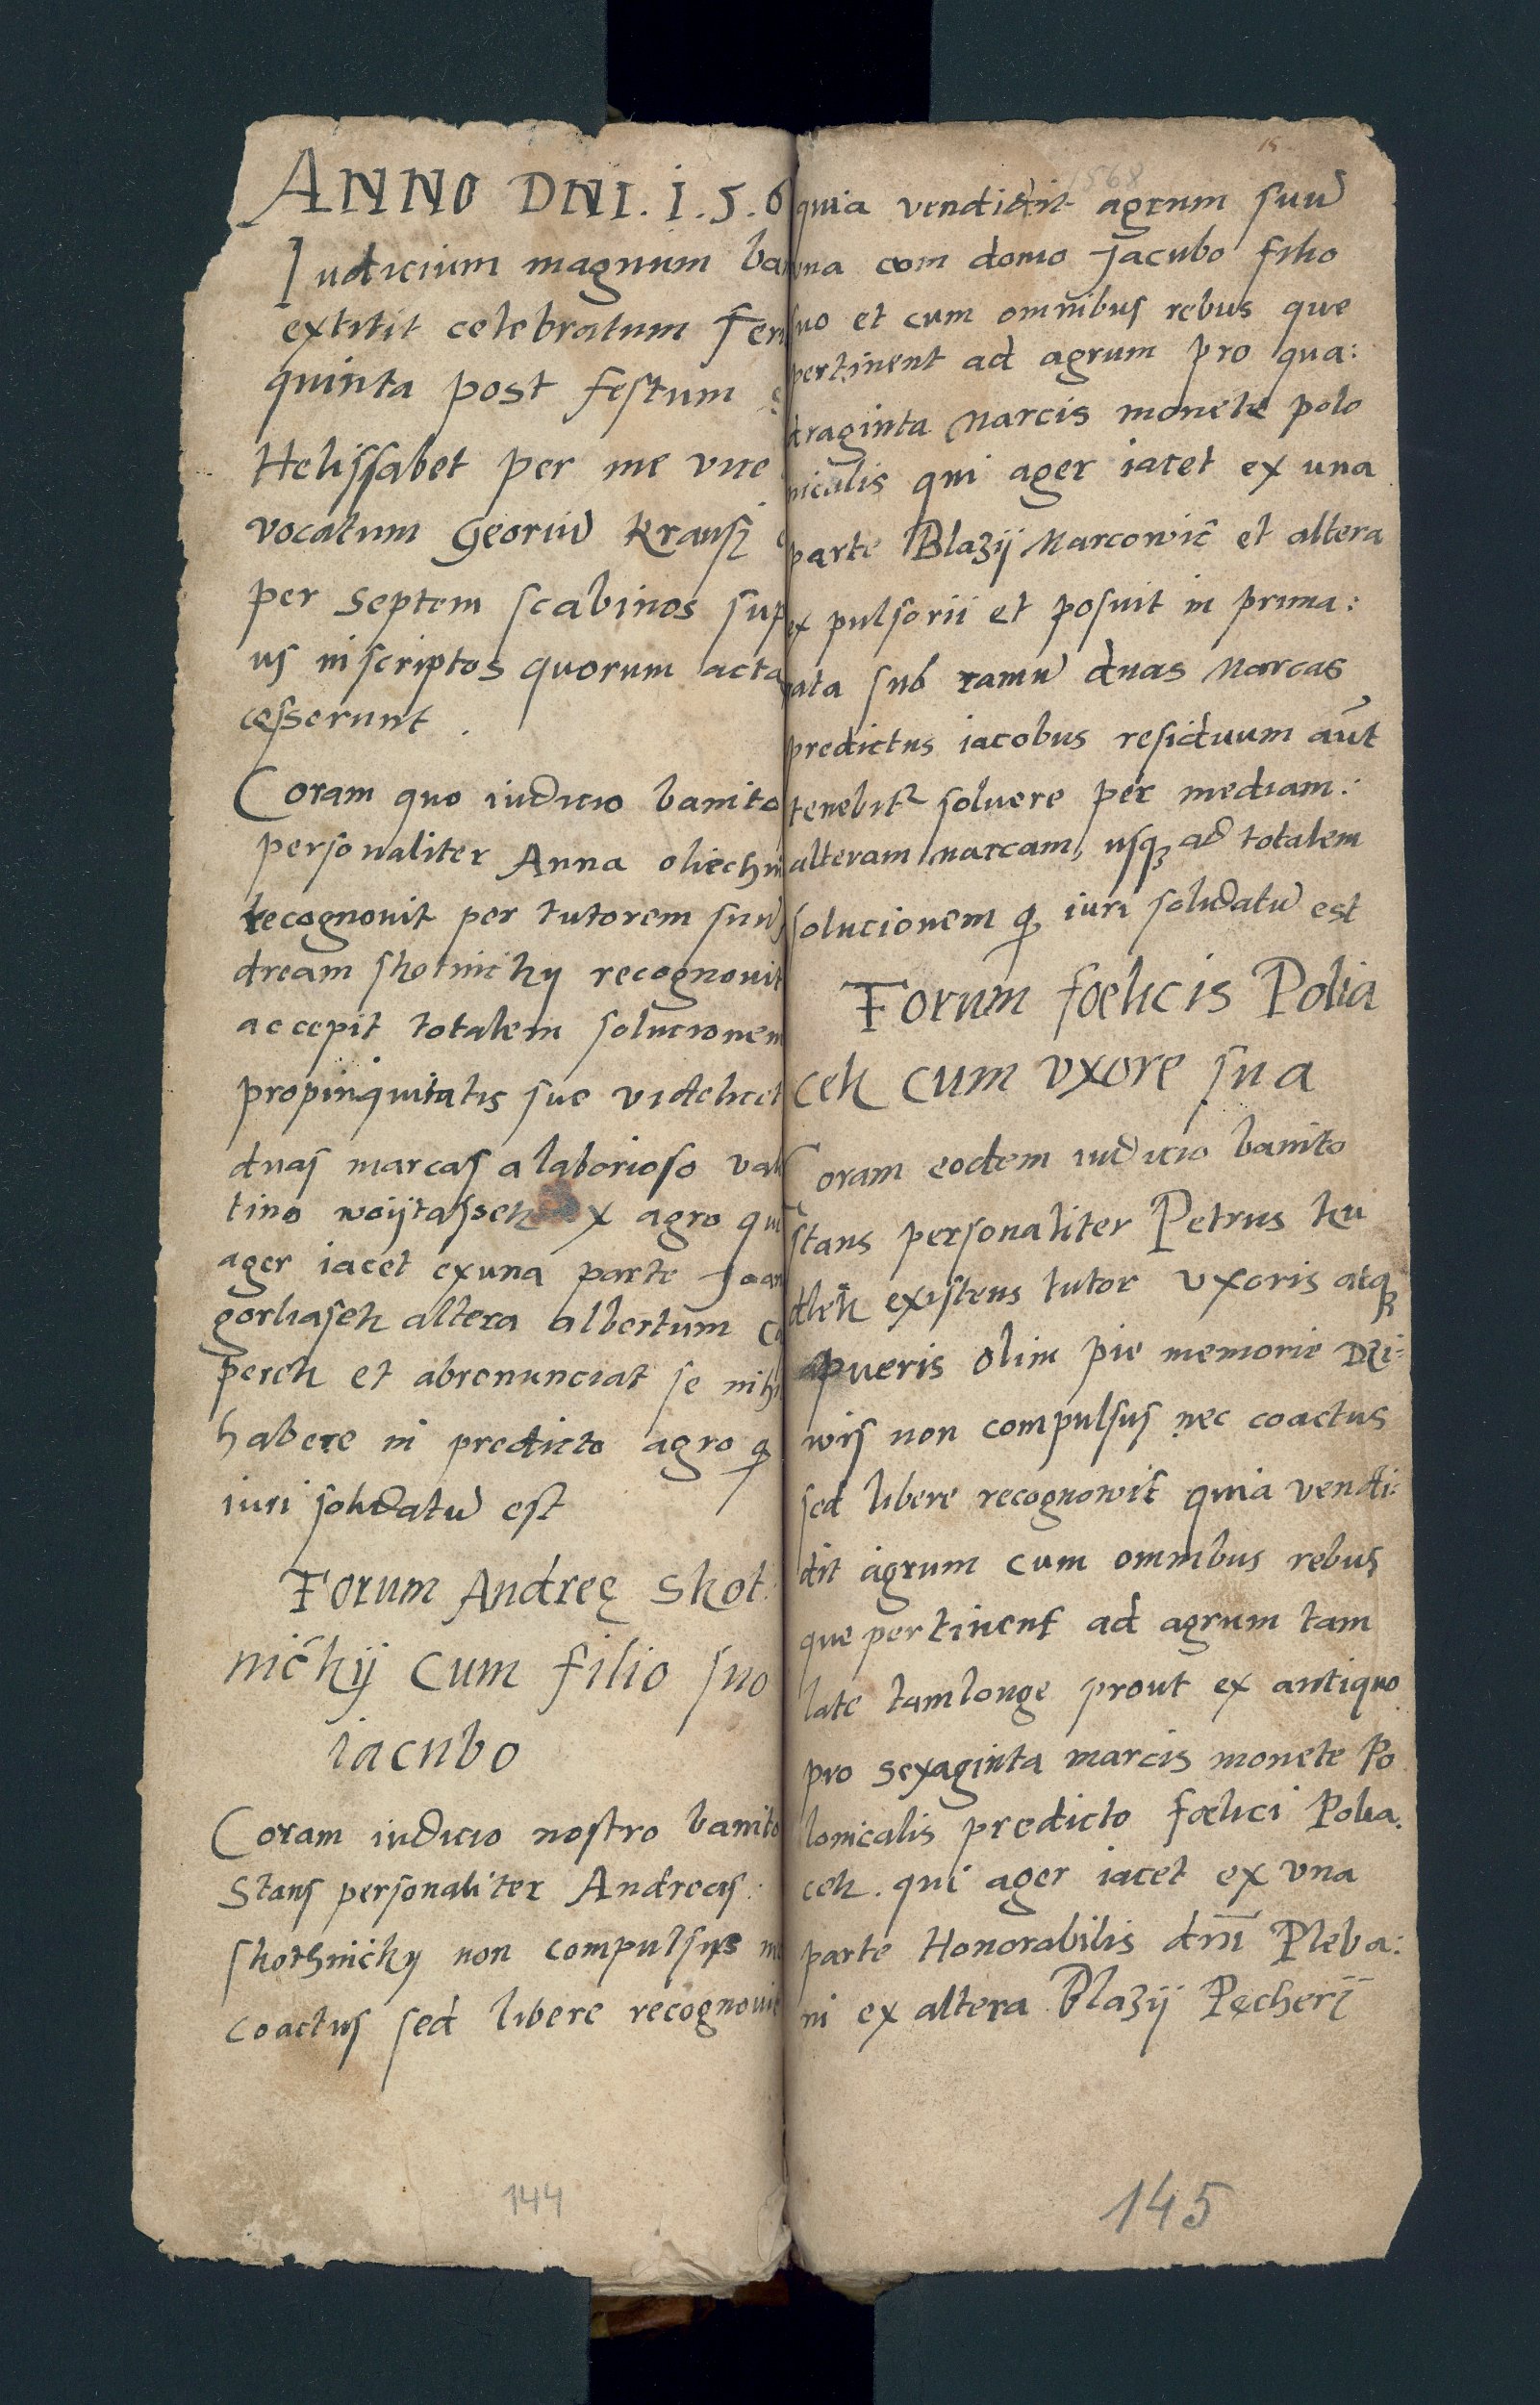 ANNO DNI. 1. 5. 6
Iudicium magnum ban
extitit celebratum Feri
quinta post festum
Helissabet per me vice
vocatum Georiu Krausz
per septem scabinos sup
us inscriptos quorum acta
cesserunt.
Coram quo iudicio banito
personaliter Anna oliechn
recognovit per tutorem suu
dream skotnichy recognovit
accepit totalem solucionem
propinquitatis sue videlicet
duas marcas a laborioso val
tino woytassek ex agro qui
ager iacet ex una parte Joan
gorliasek altera albertum
perek et abrenunciat se nihi
habere in predicto agro q
iuri solidatu est
Forum Andreę Skot
nichij cum filio suo
iacubo
Coram iudicio nostro banito
Stans personaliter Andreas:
skothnichy non compulsus
coactus sed libere recognovit
144
15
1568
quia vendidit agrum suu
una com domo Jacubo filio
suo et cum omnibus rebus que
pertinent ad agrum pro qua:
draginta Marcis monete polo
nicalis qui ager iacet ex una
parte Blazij Marcowic et altera
ex pulsorii et posuit in prima:
rata sub ramu duas Marcas
predictus iacobus residuum aut
tenebitr solvere per mediam:
alteram marcam, usq ad totalem
solucionem q iuri solidatu est
Forum fœlicis Polia
cek cum uxore sua
Coram eodem iudicio banito
stans personaliter Petrus ku
dlek existens tutor uxoris atq
apueris olim pie memorie Dri:
wis non compulsus nec coactus
sed libere recognowit quia vendi:
dit agrum cum omnibus rebus
que pertinent ad agrum tam
late tamlonge prout ex antiquo
pro sexaginta marcis monete Po
lonicalis predicto fœlici Polia.
cek. qui ager iacet ex una
parte Honorabilis dni Pleba:
ni ex altera Blazij Pęcherz
145